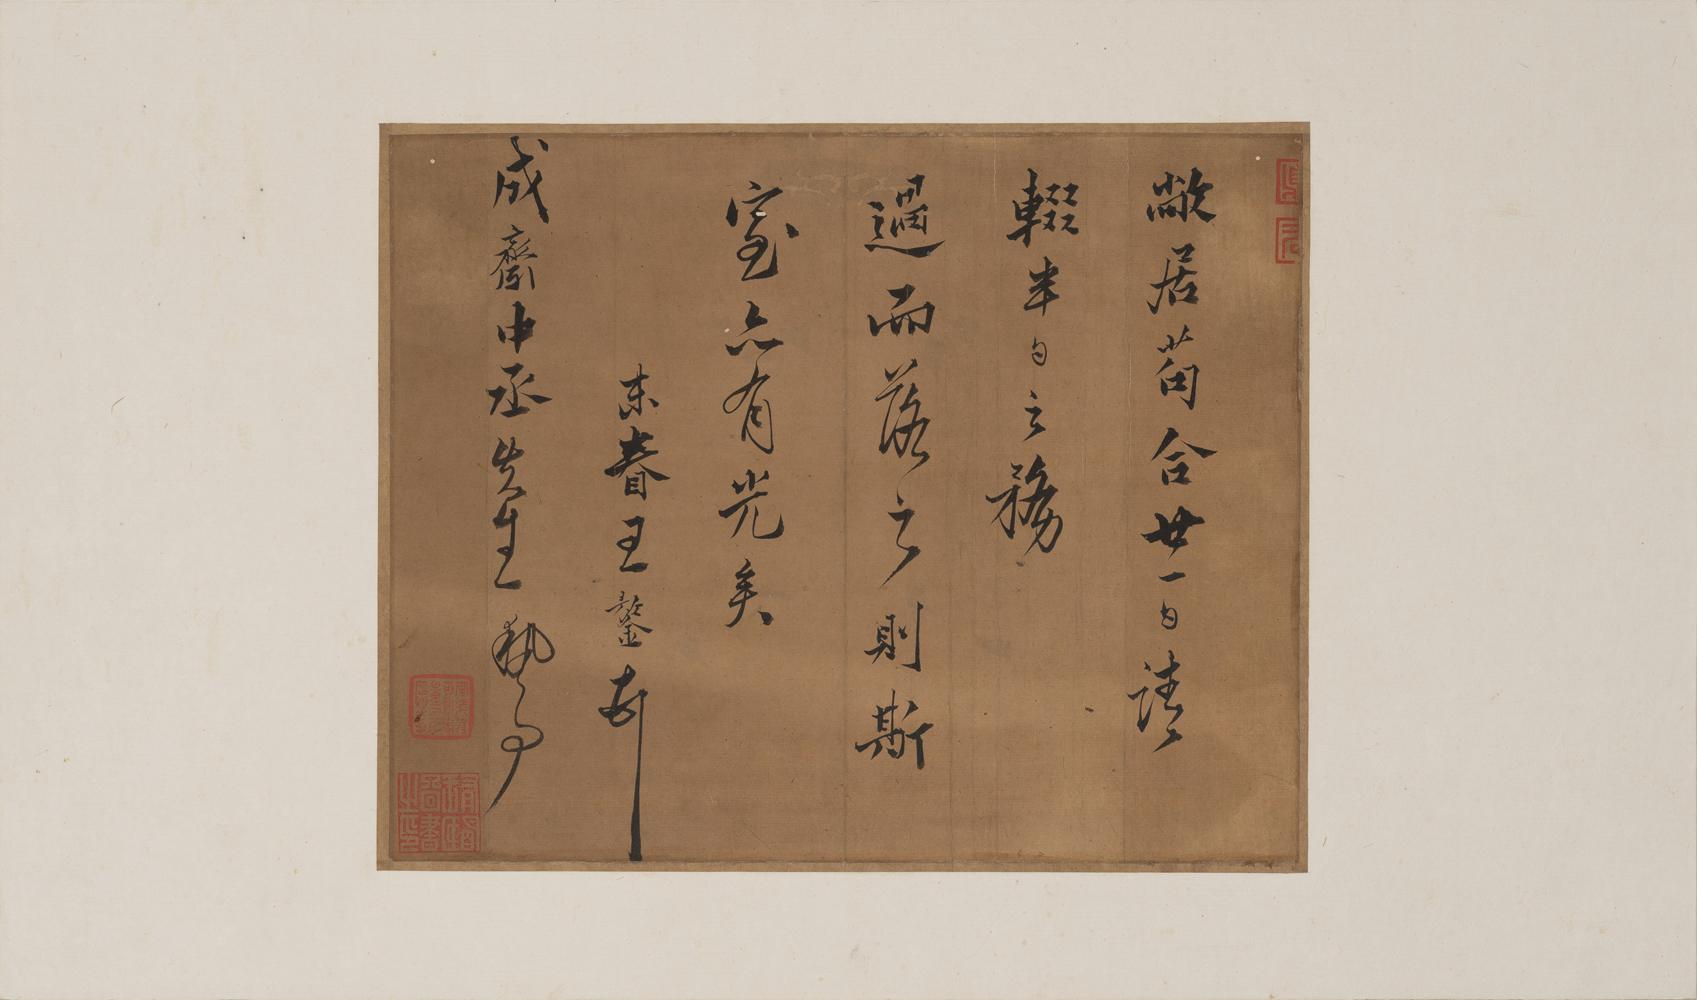 敝居苟合廿一日請
輟半日之務
過而落之則斯
室亦有光矣
末眷王鏊奉
成齋中丞先生執事